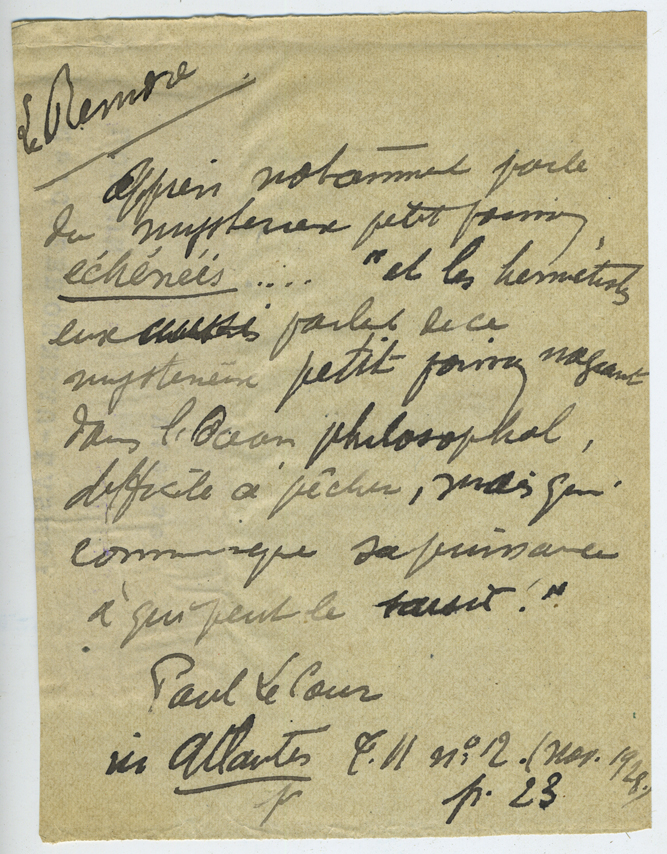 Le Remore
Oppien notamment parle
du mysterieux petit poisson,
échénéis .... "et les hermétistes
eux aussi parlent de ce
mysterieux petit poisson nageant
dans l'Ocean philosophal,
difficile à pêcher, mais qui
communique sa puissance
à qui peut le saisir."
Paul Le Cour
in Atlantis T. II n° 12. (nov. 1928.)
p. 23